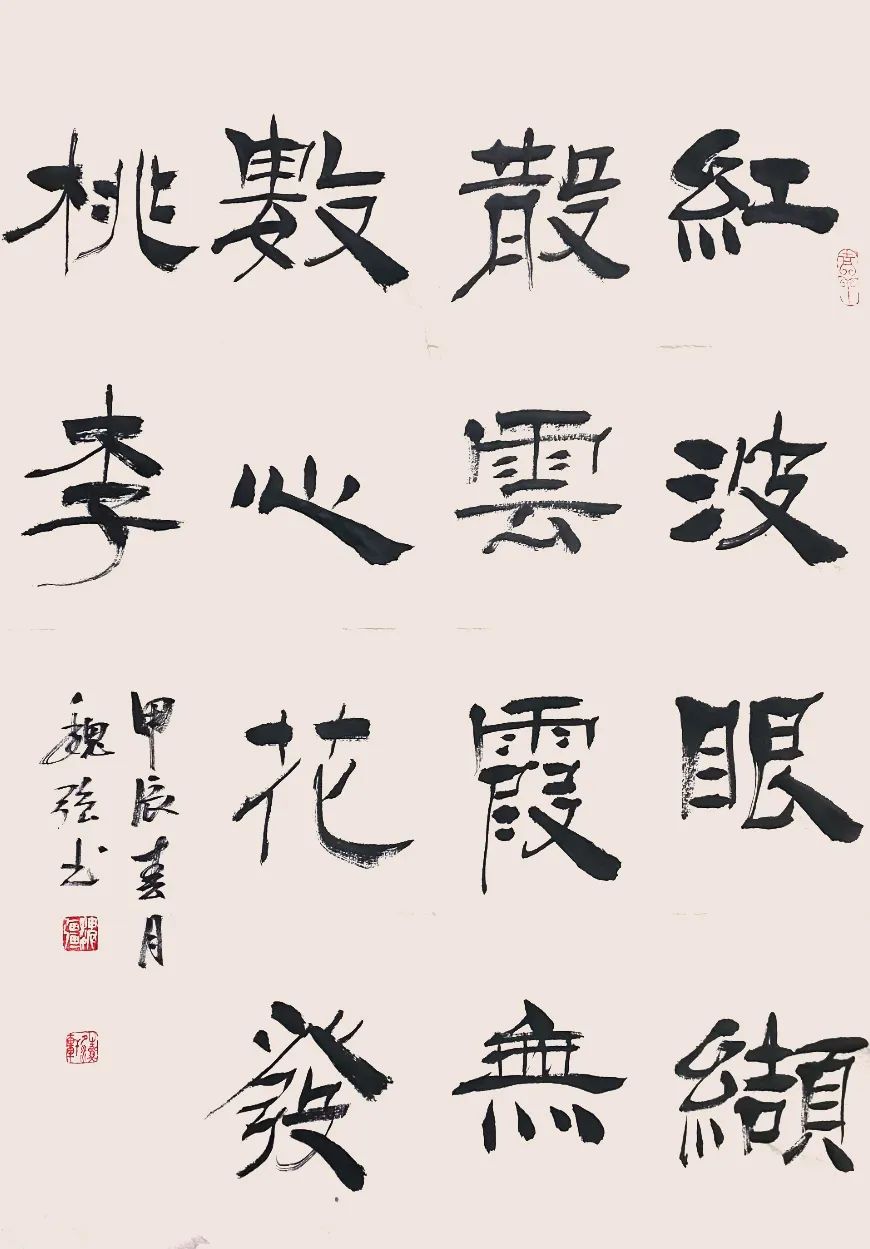 紅波眼纈
散雲霞無
數心花發
桃李
甲辰春月
魏強书